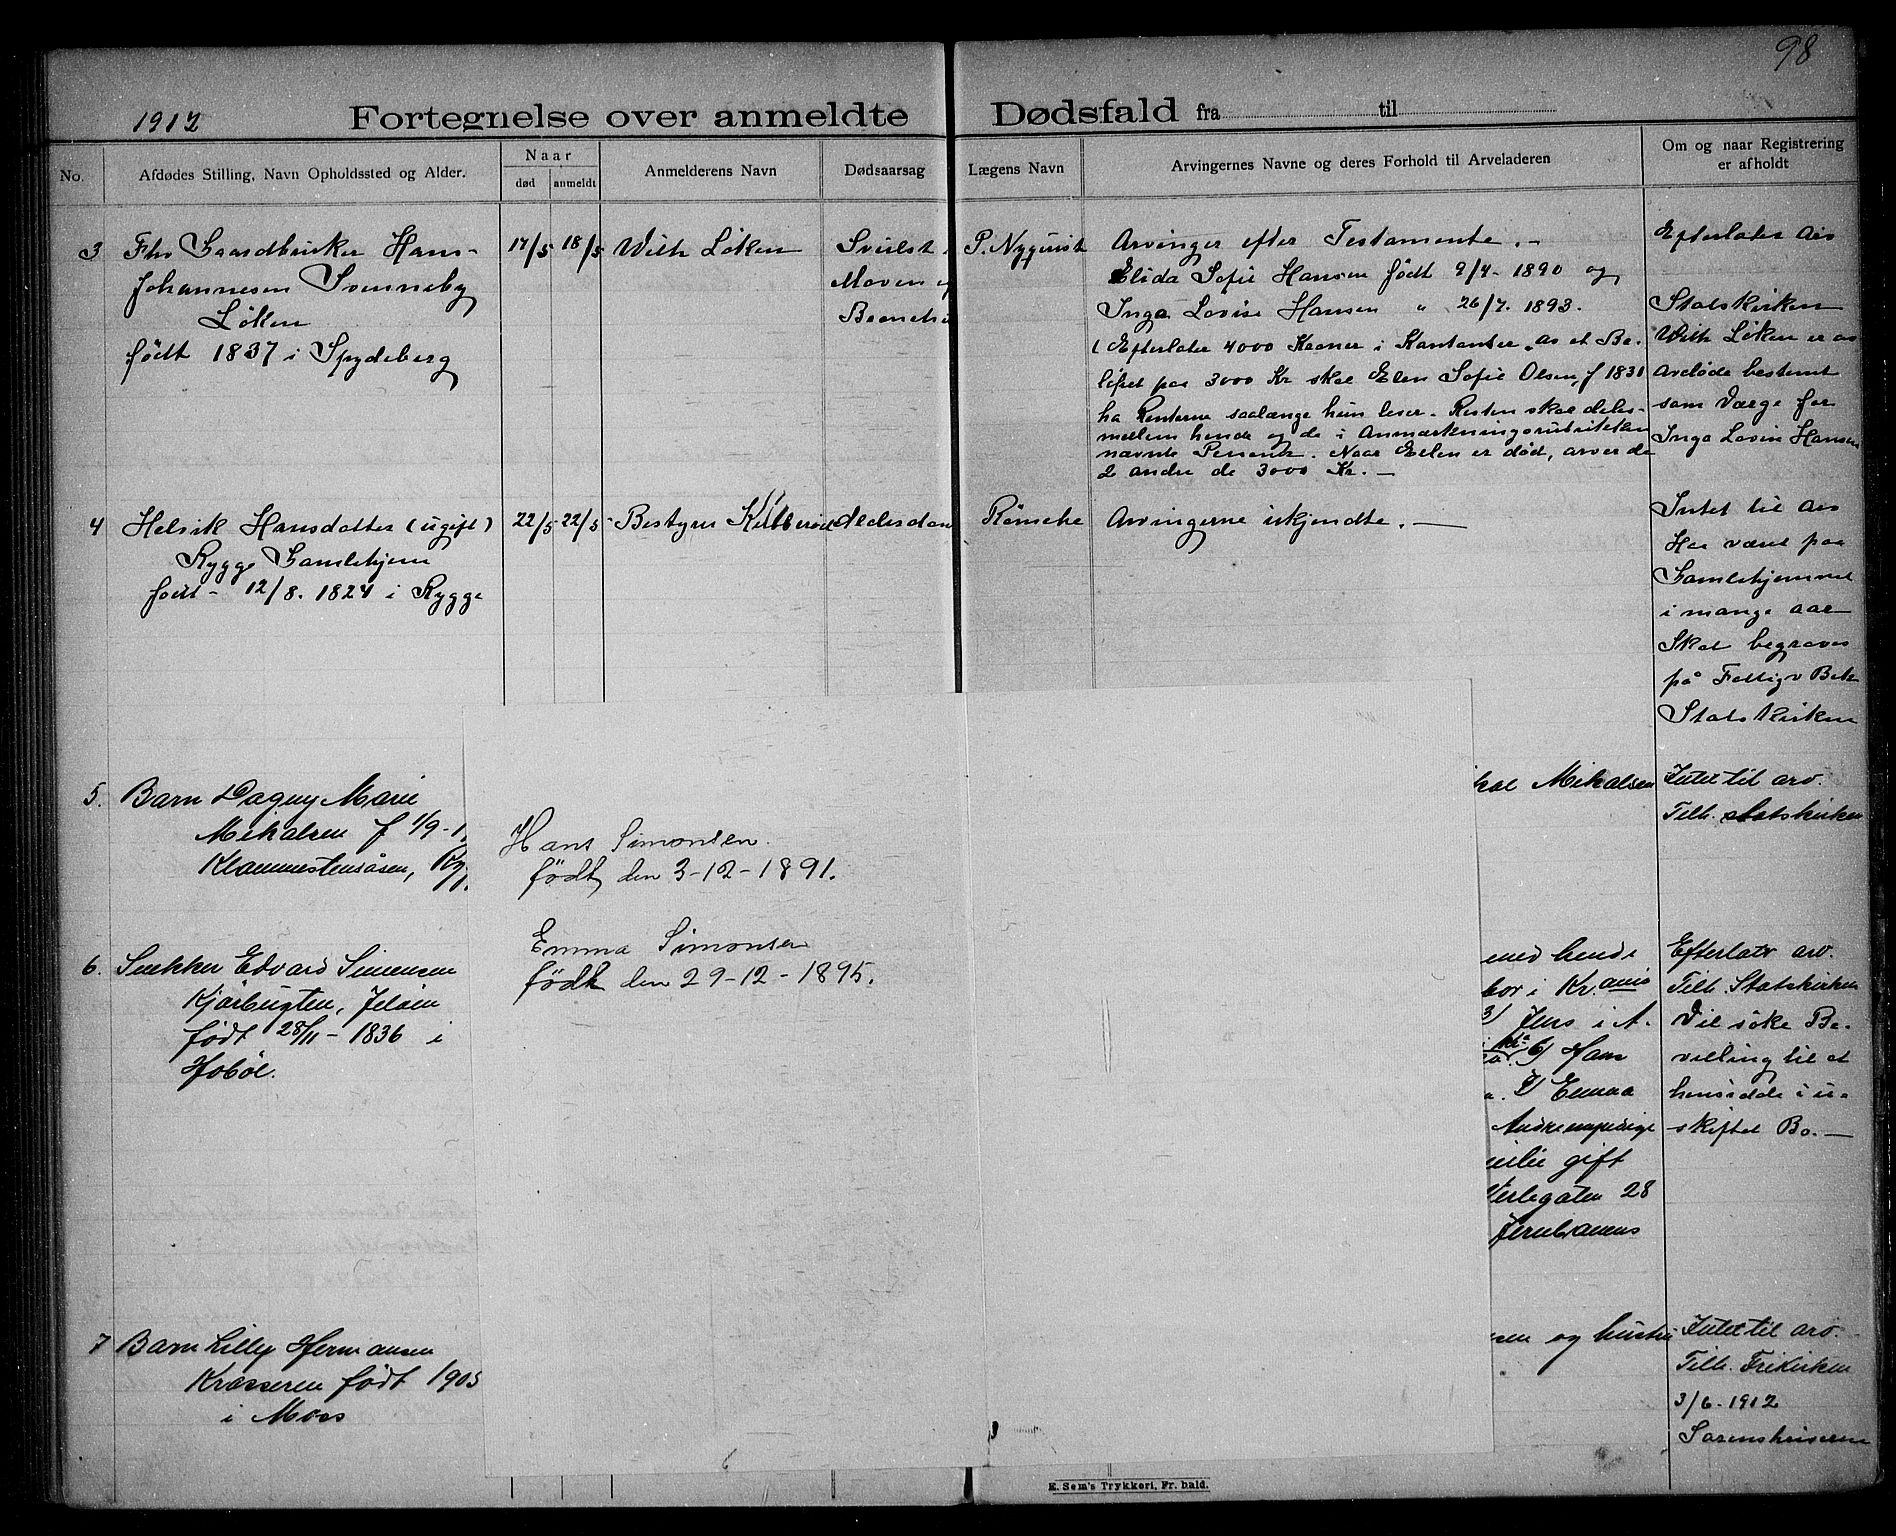 98
1912 Fortegnelse over anmeldte Dødsfald fra til
No.
Afdødes Stilling, Navn Opholdssted og Alder.
Naar
død anmeldt
Anmelderens Navn
Dødsaarsag
Lægens Navn
Arvingernes Navne og deres Forhold til Arveladeren
Om og naar Registrering
er afholdt
3 Fhv Gaardbruker Hans
Johannesen Svenneby
Løken
født 1837 i Spydeberg
17/5 18/5 Wilh Løken
Svulst i
Maven og
P. Nyquist
Arvinger efter Testamente. -
Elida Sofie Hansen født 9/4 - 1890 og
Inga Lovise Hansen " 26/7. 1893.
( Efterlater 4000 Kroner i Kontanter, av et Be-
løpet paa 3000 Kr skal Elen Sofie Olsen, f 1831
ha Renterne saalænge hun lever. Resten skal deles
mellem hende og de i Anmærkningsrubrikken
nævnte Personer. Naar Elen er død, arver de
2 andre de 3000 Kr. -
Efterlater Arv
Statskirken
Wilh Løken er av
avdøde bestemt
som Værge for
Inga Lovise Hansen
4 Helvik Hansdatter (ugift)
Rygge Gamlehjem
født - 12/8. 1824 i Rygge
22/5 22/5 Bestyrer
Alderdom
Römcke
Arvingerne ukjendte. -
Intet til Arv
Har været paa
Gamlehjemmet
i mange aar
Skal begraves
på Fattigv Bek
Statskirken
5. Barn Dagny Marie
Mikalsen f 1/9 - 1
Klommestensåsen, Ry
kal Mikalsen
Intet til arv.
Tilh. statskirken
Hans Simonsen.
født den 3-12-1891.
Emma Simonsen
født den 29-12-1895.
6. Snekker Edvard Simensen
Kjærbugten, Jeløen
født 28/11 - 1836 i
Hobøl.
med hende
bor i Kr.ania
3) Jens i A.
6) Hans
7) Emma
Andreas
gift
gaten 28
Jernbanens
Efterlatr arv.
Tilh. Statskirken
Vil søke Be-
villing til at
hensidde i u-
skiftet Bo. -
7 Barn Lilly Hermansen
Krosseren født 1905
i Moss
sen og hustru
Intet til arv.
Tilh. Frikirken
3/6 - 1912
Sorenskriveren
6
E. Sem's Trykkeri, Fr.hald.